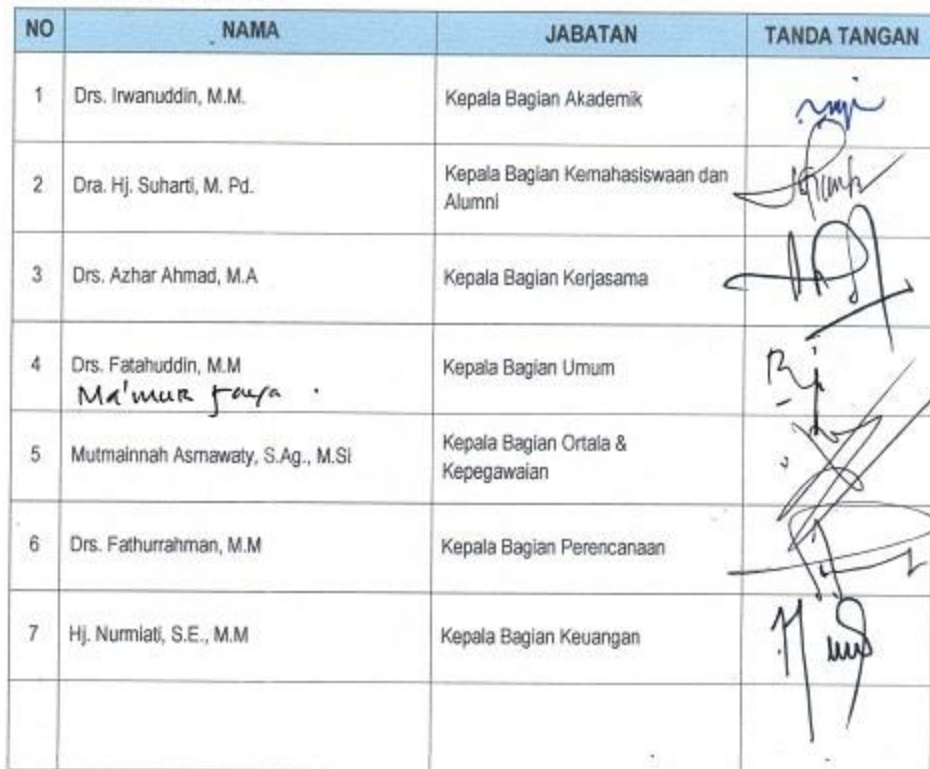 NO NAMA JABATAN TANDA TANGAN
1 Drs. Irwanuddin, M.M. Kepala Bagian Akademik
2 Dra. Hj. Suharti, M. Pd. Kepala Bagian Kemahasiswaan dan
Alumni
3 Drs. Azhar Ahmad, M.A Kepala Bagian Kerjasama
4 Drs. Fatahuddin, M.M Kepala Bagian Umum
Ma'mur
5 Mutmainnah Asmawaty, S.Ag., M.Si Kepala Bagian Ortala &
Kepegawaian
6 Drs. Fathurrahman, M.M Kepala Bagian Perencanaan
7 Hj. Nurmiati, S.E., M.M Kepala Bagian Keuangan